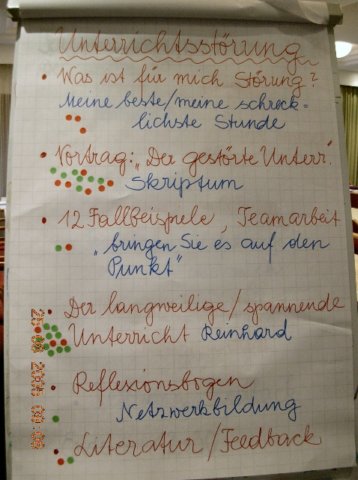 Unterrichtsstörung
• Was ist für mich Störung?
Meine beste/meine schreck-
lichste Stunde
• Vortrag: „Der gestörte Unterr.
Skriptum
• 12 Fallbeispiele, Teamarbeit
„bringen Sie es auf den
Punkt"
• Der langweilige/spannende
Unterricht Reinhard
• Reflexionsbogen
Netzwerkbildung
• Literatur/Feedback